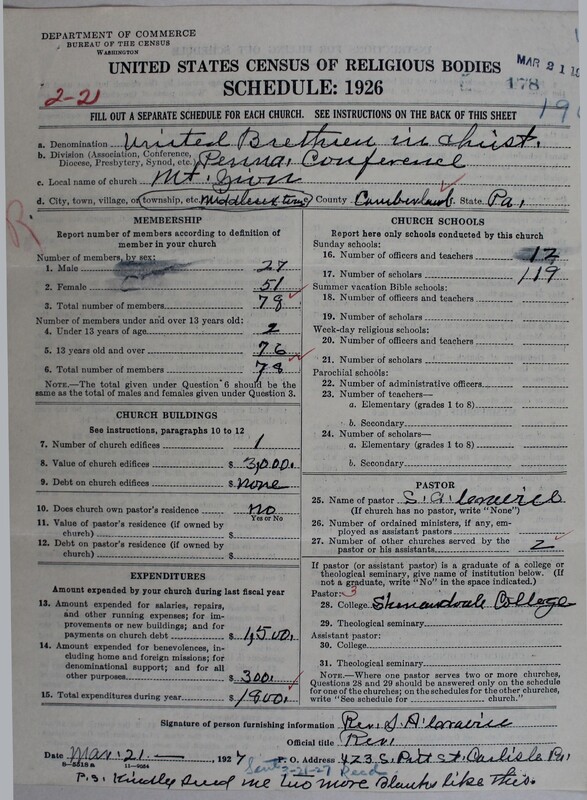 DEPARTMENT OF COMMERCE
BUREAU OF THE CENSUS
WASHINGTON
MAR 21 19
178
UNITED STATES CENSUS OF RELIGIOUS BODIES
SCHEDULE: 1926
2-21
FILL OUT A SEPARATE SCHEDULE FOR EACH CHURCH. SEE INSTRUCTIONS ON THE BACK OF THIS SHEET
a. Denomination United Brethren in Christ.
b. Division (Association, Conference, Diocese, Presbytery, Synod, etc.) Penna. Conference
c. Local name of church Mt. Zion
d. City, town, village, or township, etc. Middlesex Twp County Cumberland State Pa.
R
MEMBERSHIP
Report number of members according to definition of
member in your church
Number of members, by sex:
1. Male 27
2. Female 51
3. Total number of members 78
Number of members under and over 13 years old:
4. Under 13 years of age 2
5. 13 years old and over 76
6. Total number of members 78
NOTE.—The total given under Question 6 should be the
same as the total of males and females given under Question 3.
CHURCH BUILDINGS
See instructions, paragraphs 10 to 12
7. Number of church edifices 1
8. Value of church edifices $ 3,000.
9. Debt on church edifices $ none
10. Does church own pastor's residence no
Yes or No
11. Value of pastor's residence (if owned by
church) $
12. Debt on pastor's residence (if owned by
church) $
EXPENDITURES
Amount expended by your church during last fiscal year
13. Amount expended for salaries, repairs,
and other running expenses; for im-
provements or new buildings; and for
payments on church debt $ 1,500.
14. Amount expended for benevolences, in-
cluding home and foreign missions; for
denominational support; and for all
other purposes $ 300.
15. Total expenditures during year $ 1800.
CHURCH SCHOOLS
Report here only schools conducted by this church
Sunday schools:
16. Number of officers and teachers 12
17. Number of scholars 119
Summer vacation Bible schools:
18. Number of officers and teachers
19. Number of scholars
Week-day religious schools:
20. Number of officers and teachers
21. Number of scholars
Parochial schools:
22. Number of administrative officers
23. Number of teachers—
a. Elementary (grades 1 to 8)
b. Secondary
24. Number of scholars—
a. Elementary (grades 1 to 8)
b. Secondary
PASTOR
25. Name of pastor S. A.
(If church has no pastor, write "None")
26. Number of ordained ministers, if any, em-
ployed as assistant pastors
27. Number of other churches served by the
pastor or his assistants 2
If pastor (or assistant pastor) is a graduate of a college or
theological seminary, give name of institution below. (If
not a graduate, write "No" in the space indicated.)
Pastor: 3
28. College Shenandoah College
29. Theological seminary
Assistant pastor:
30. College
31. Theological seminary
NOTE.—Where one pastor serves two or more churches,
Questions 28 and 29 should be answered only on the schedule
for one of the churches; on the schedules for the other churches,
write "See schedule for church."
Signature of person furnishing information Rev. S. A.
Official title Rev.
Date Mar. 21 — 1927 P. O. Address 473 S. Pitt St. Carlisle Pa.
8-5518 a 11-9284 Sent 3-21-27
P.S. Kindly send me two more blanks like this.